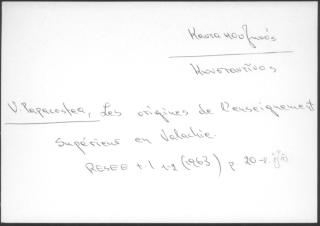 Καντακουζηνός
Κωνσταντῖνος
V. Papacostea, Les origines de l'enseignement
supérieur en Valachie.
RESEE t. I 1-2 (1963) p. 20-